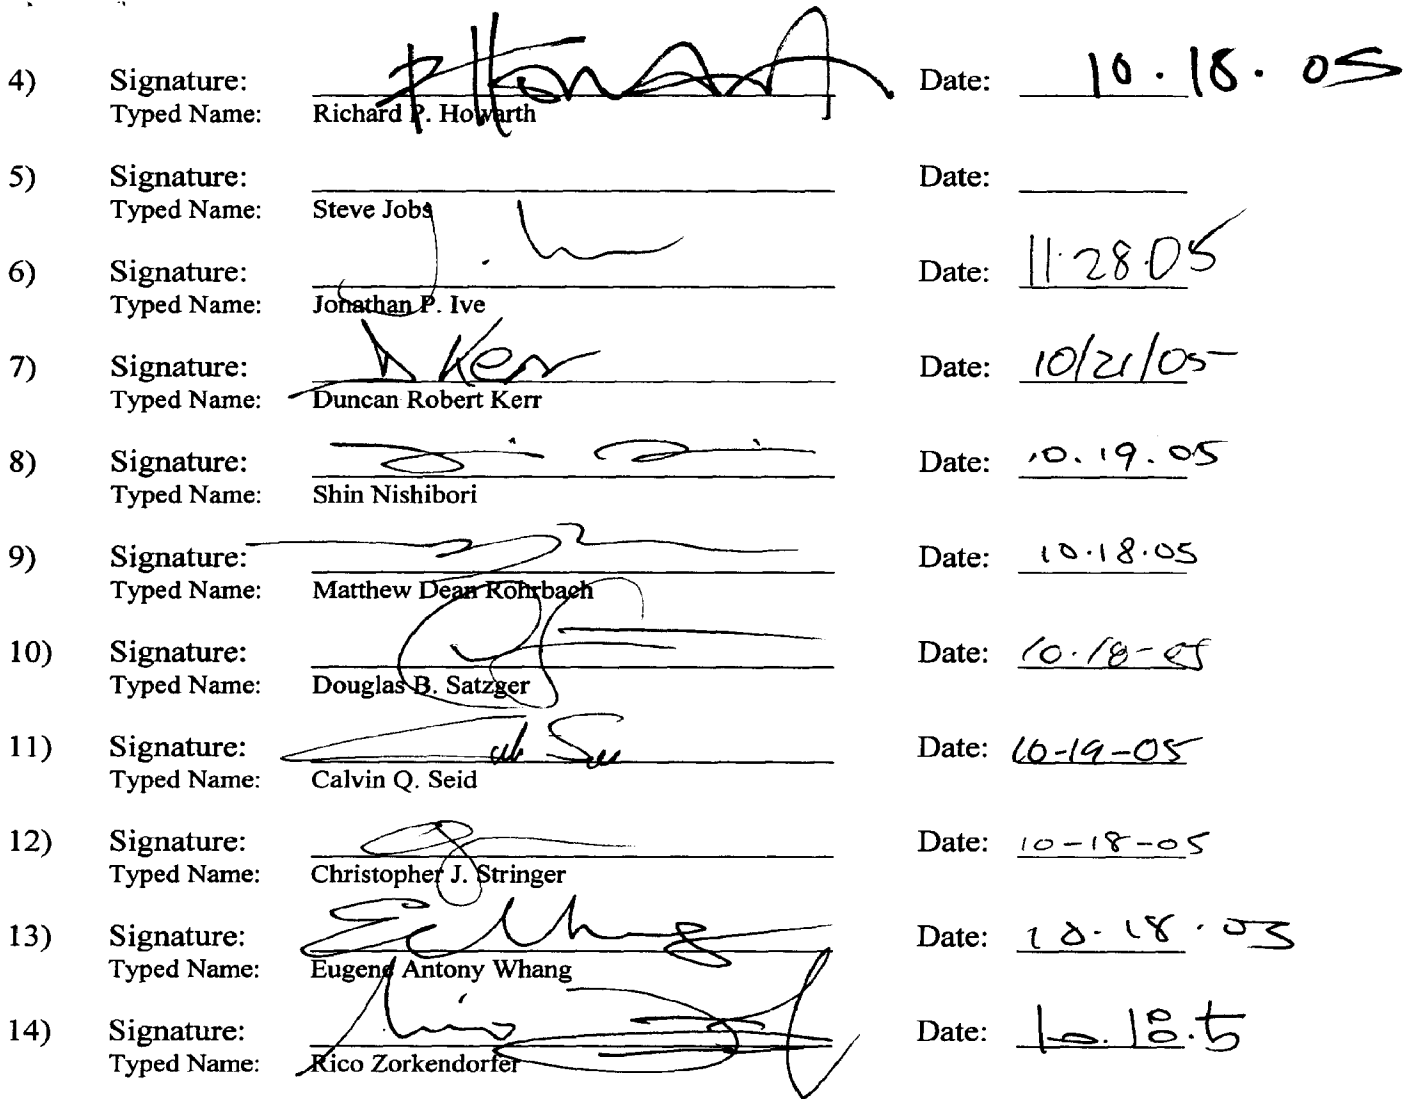 4) Signature: P Howarth Date: 10.18.05
Typed Name: Richard P. Howarth
5) Signature: Date:
Typed Name: Steve Jobs
6) Signature: Date: 11.28.05
Typed Name: Jonathan P. Ive
7) Signature: D Kerr Date: 10/21/05
Typed Name: Duncan Robert Kerr
8) Signature: Date: 10.19.05
Typed Name: Shin Nishibori
9) Signature: Date: 10.18.05
Typed Name: Matthew Dean Rohrbach
10) Signature: Date: 10.18-05
Typed Name: Douglas B. Satzger
11) Signature: Date: 10-19-05
Typed Name: Calvin Q. Seid
12) Signature: Date: 10-18-05
Typed Name: Christopher J. Stringer
13) Signature: Date: 10.18.05
Typed Name: Eugene Antony Whang
14) Signature: Date: 10.18.5
Typed Name: Rico Zorkendorfer